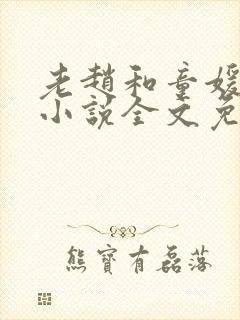 老趙和童媛
小說全文免
熊寶有磊落